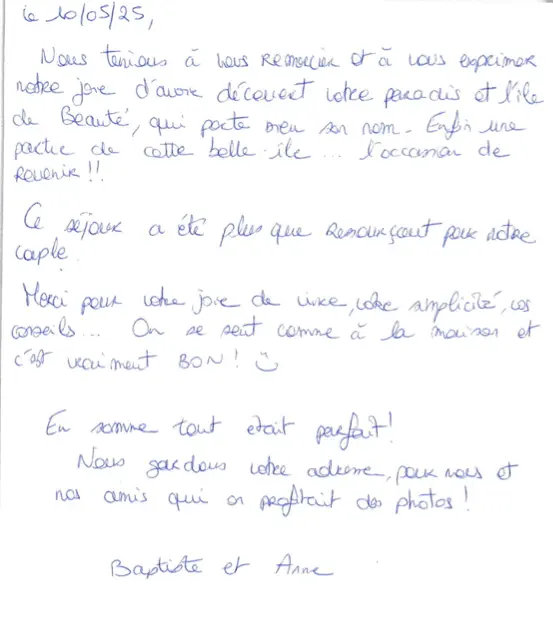 le 10/05/25,
Nous tenions à vous remercier et à vous exprimer
notre joie d'avoir découvert votre paradis et l'île
de Beauté, qui porte bien son nom. Enfin une
partie de cette belle île... l'occasion de
revenir !!
Ce séjour a été plus que ressourçant pour notre
couple.
Merci pour votre joie de vivre, votre simplicité, vos
conseils... On se sent comme à la maison et
c'est vraiment BON ! ☺
En somme tout etait parfait !
Nous gardons votre adresse, pour nous et
nos amis qui on profitait des photos !
Baptiste et Anne